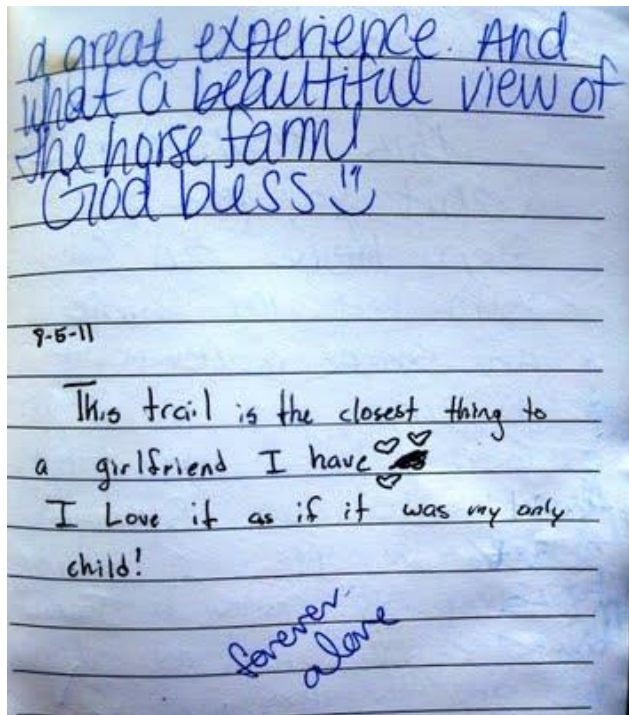 a great experience. And
what a beautiful view of
the horse farm!
God bless
9-5-11
This trail is the closest thing to
a girlfriend I have
I Love it as if it was my only
child!
forever
alone